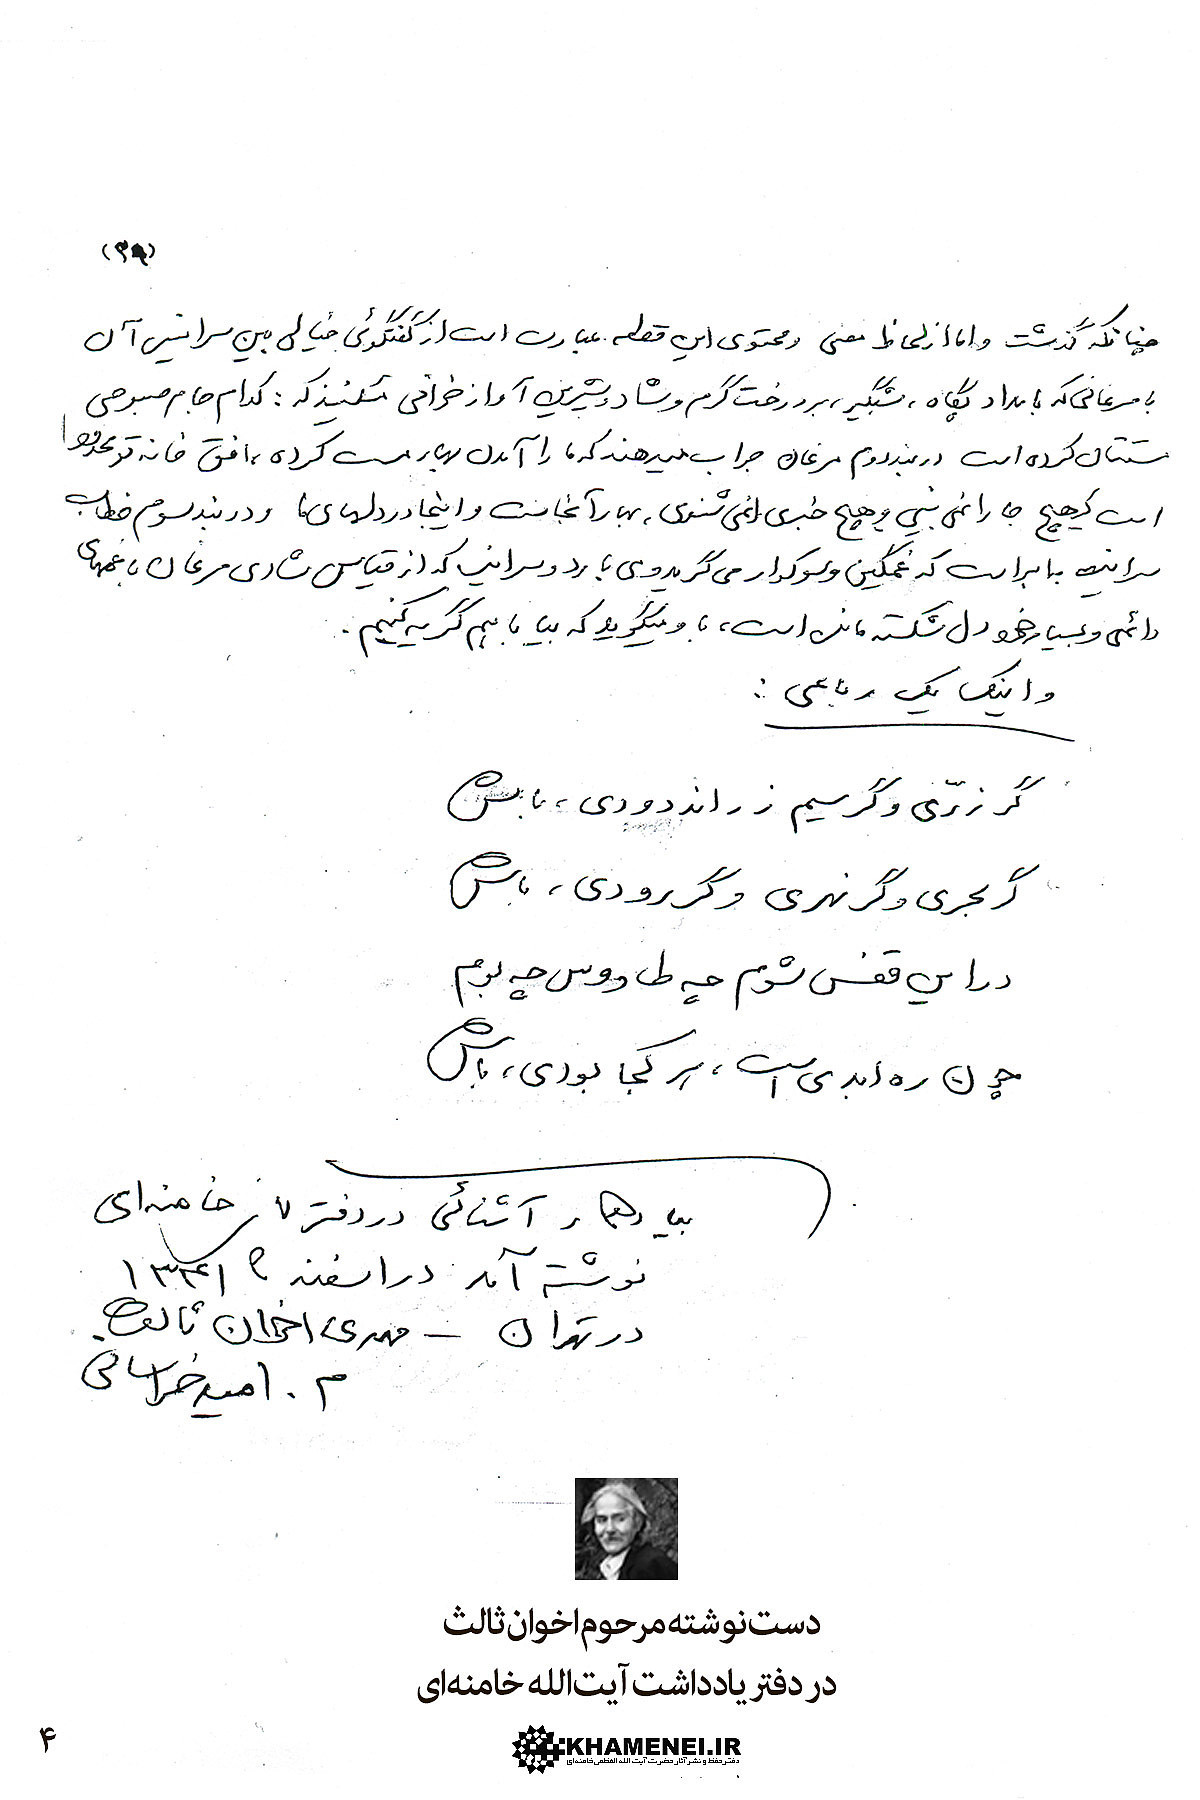 (۳۹)
چنانکه گذشت و اما از لحاظ معنی و محتوی این قطعه عبارت است از گفتگوئی خیالی بین سراینده آن
با مرغانی که بامداد پگاه، شبگیر، بر درخت گرم و شاد و شیرین آواز خوانی میکنند که: کدام جام صبوحی
مستتان کرده است در بند دوم مرغان جواب میدهند که ما را آمدن بهار مست کرده، افق خانه تو محدود
است که هیچ جا را نمی بینی و هیچ خبری نمی شنوی، بهار آنجاست و اینجا در دلهای ما و در بند سوم خطاب
سراینده با ابر است که غمگین و سوگوار می گرید و می بارد و سراینده که از قیاس شادی مرغان با غمهای
دائمی و بسیار خود دل شکسته مانده است، با او میگوید که بیا با هم گریه کنیم.
و اینک یک رباعی:
گر زرّی و گر سیم زراندودی، باش
گر بحری و گر نهری و گر رودی، باش
در این قفس شوم چه طاووس چه بوم
چون ره ابدی است، هر کجا بودی، باش
بیادگار آشنائی در دفتر خامنه‌ای
نوشته آمد در اسفند ماه ۱۳۴۱
در تهران – مهدی اخوان ثالث
م. امید خراسانی
دست‌نوشته مرحوم اخوان ثالث
در دفتر یادداشت آیت‌الله خامنه‌ای
KHAMENEI.IR
دفتر حفظ و نشر آثار حضرت آیت الله العظمی خامنه‌ای
۴